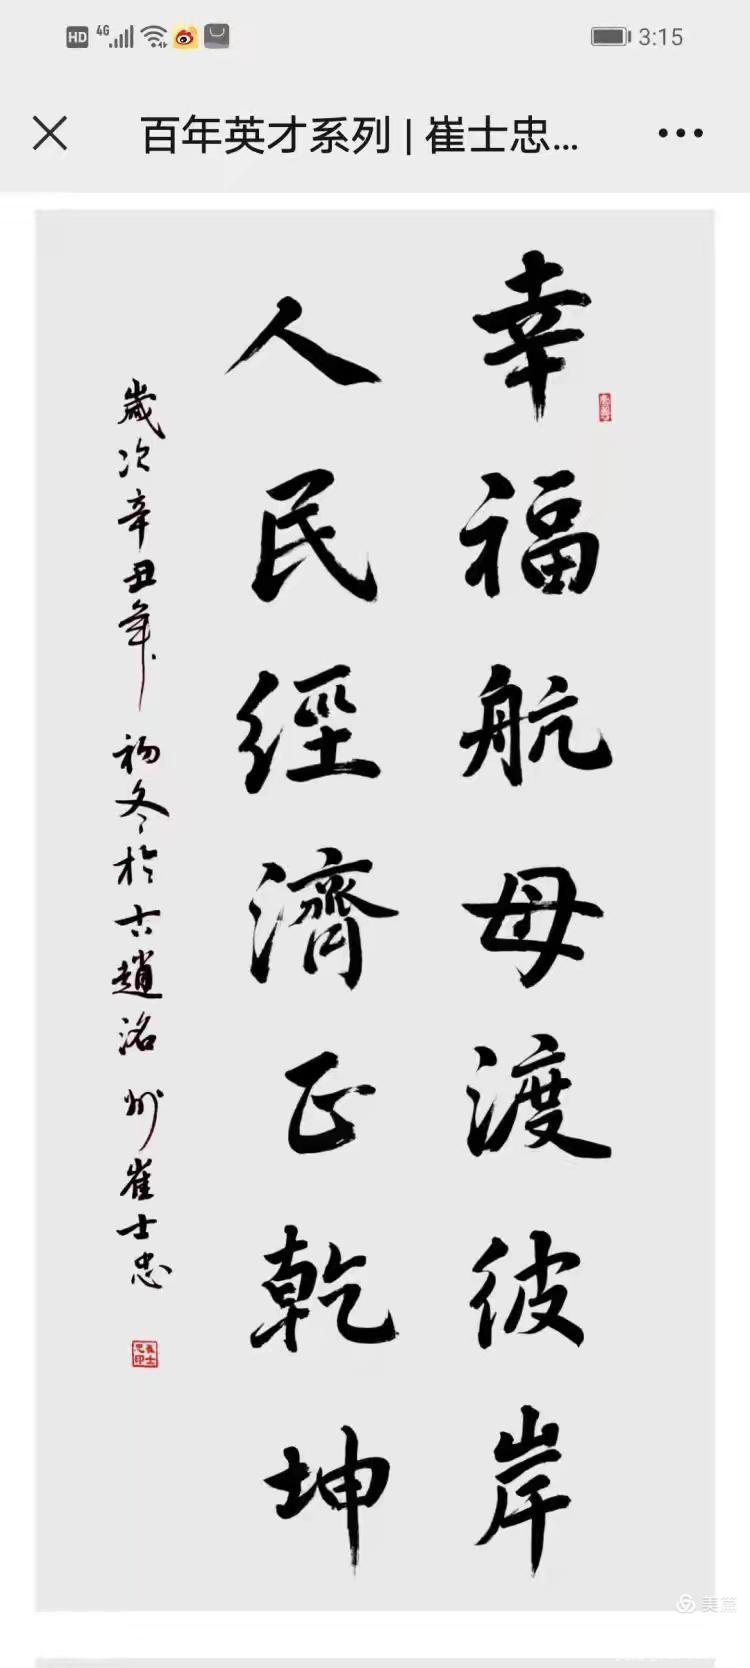 HD 4G 3:15
百年英才系列 | 崔士忠...
幸福航母渡彼岸
人民經濟正乾坤
歲次辛丑年初冬於古趙洺州崔士忠
崔士忠印
美篇